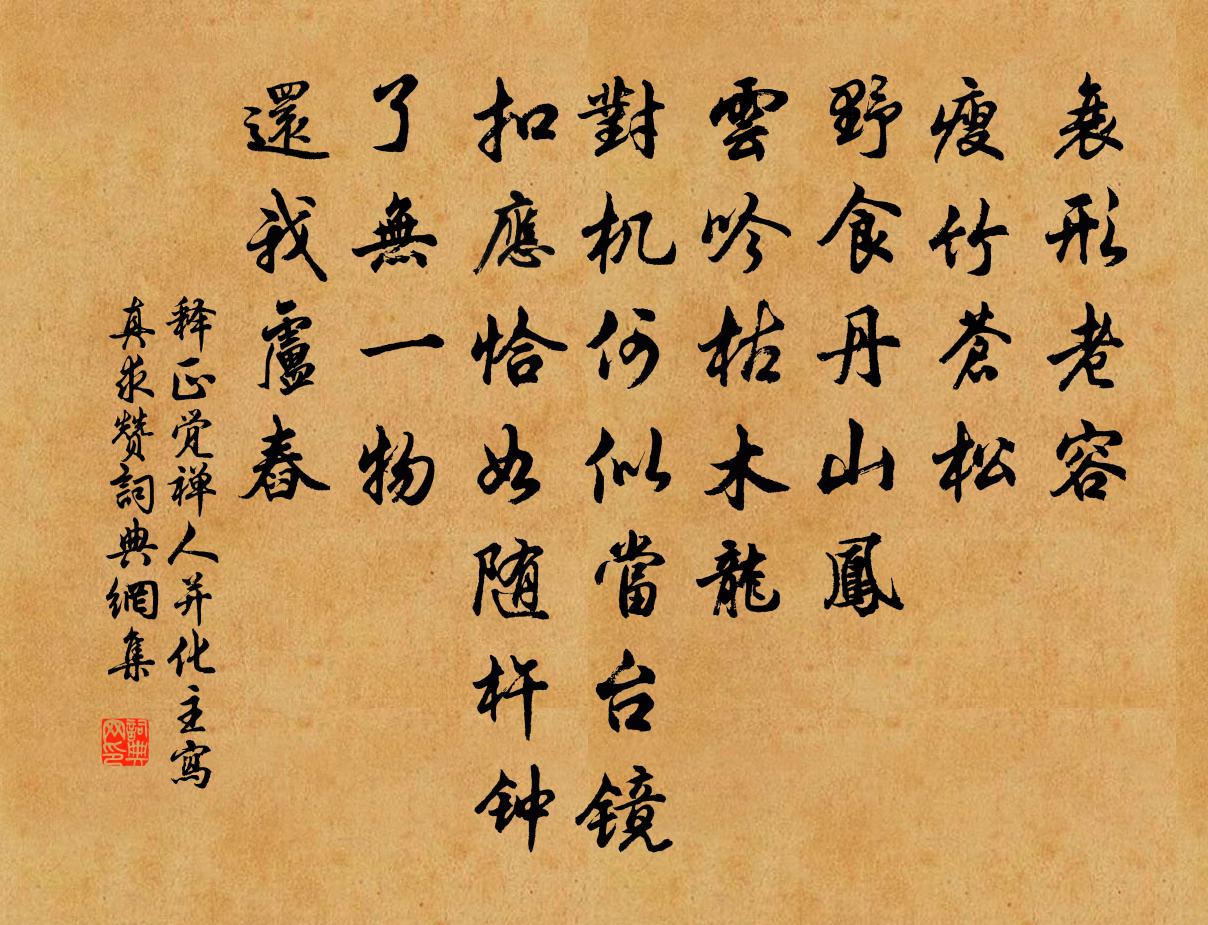 衰形老容
瘦竹蒼松
野食丹山鳳
雲吟枯木龍
對机何似當台镜
扣應恰如随杵钟
了無一物
還我盧舂
释正觉禅人并化主寫
真求赞詞典網集
詞典网印